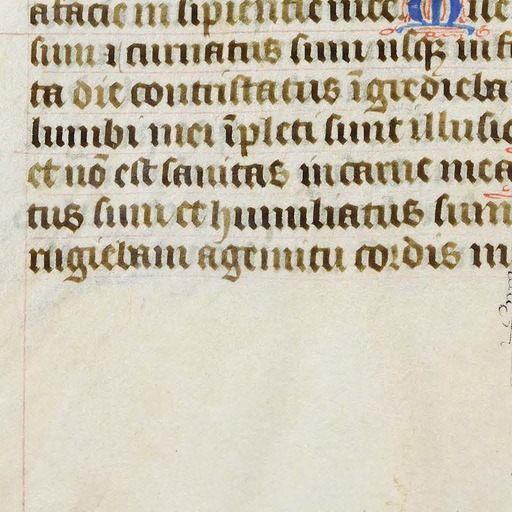 afacie insipientie mee M
sum ⁊ curuatus sum usq; in f
ta die contristatus īgredieba
lumbi mei īpleti sunt illusio
et nō est sanitas in carne mea
tus sum et humiliatus sum
rugiebam agemitu cordis m